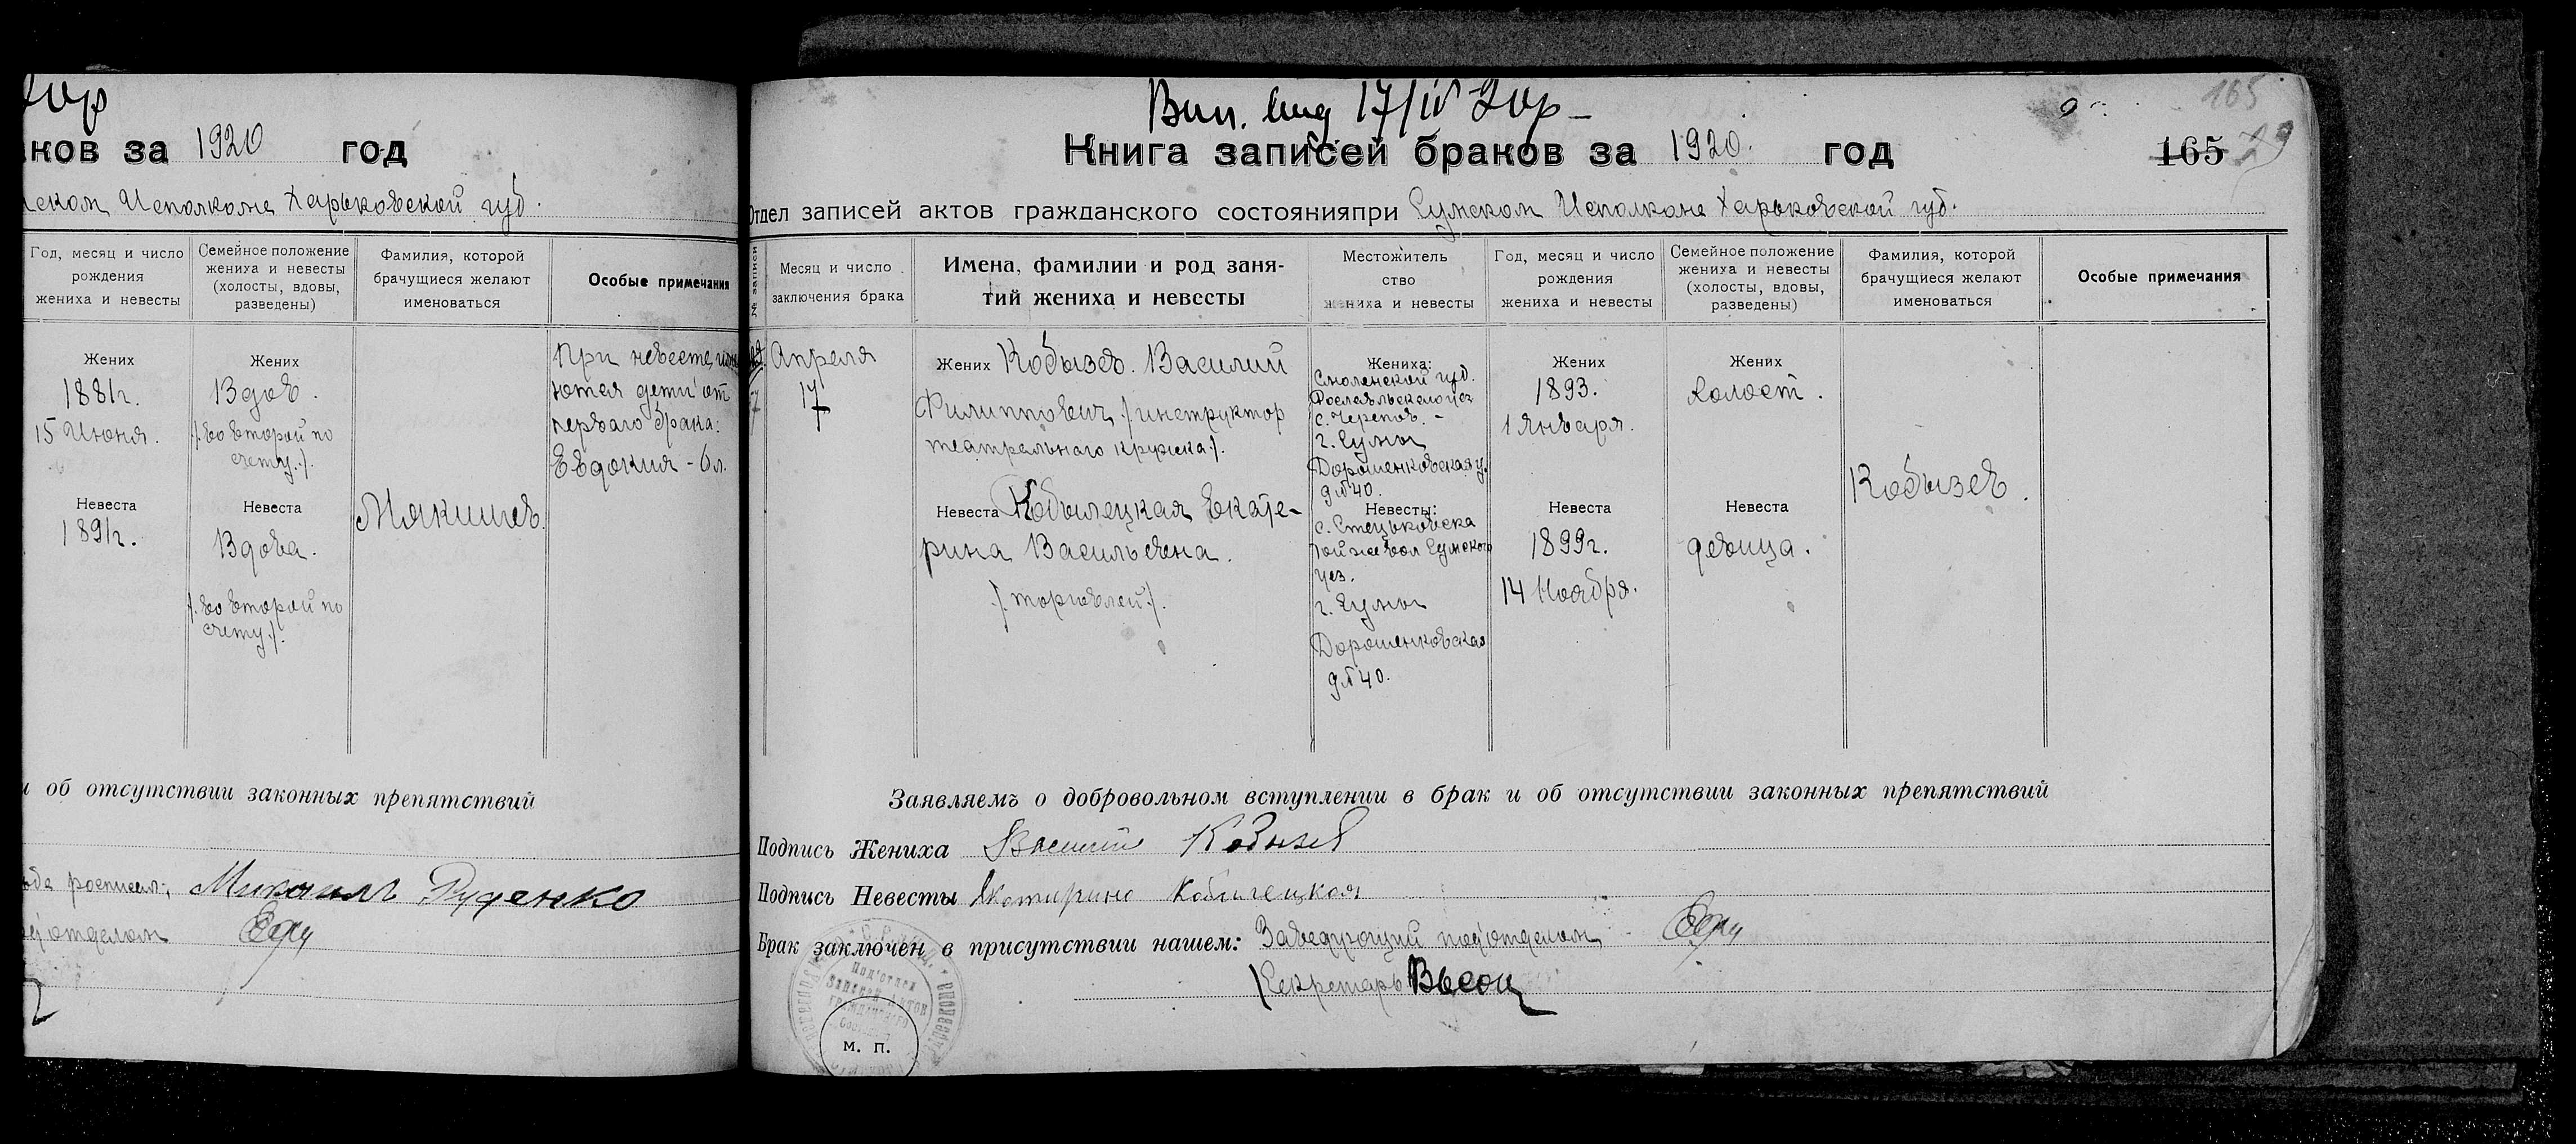 ков за 1920 год
Исполкоме Харьковской губ.
Год, месяц и число
рождения
жениха и невесты
Семейное положение
жениха и невесты
(холосты, вдовы,
разведены)
Фамилия, которой
брачущиеся желают
именоваться
Особые примечания
Жених
1881г.
15 Июня.
Невеста
1891г.
Жених
Вдов.
/. во второй по
счету./.
Невеста
Вдова.
/. во второй по
счету./.
Мякишев.
При невесте
ются дети от
перваго брака:
Евдокия - 6 л.
и об отсутствии законных препятствий
Михаилъ Руденко
отделом
Вип. 17/IV 20р –
165
Книга записей браков за 1920. год
165 79
Отдел записей актов гражданского состоянияпри Сумском Исполкоме Харьковской губ.
№ записи
Месяц и число
заключения брака
Имена, фамилии и род заня-
тий жениха и невесты
Местожитель
ство
жениха и невесты
Год, месяц и число
рождения
жениха и невесты
Семейное положение
жениха и невесты
(холосты, вдовы,
разведены)
Фамилия, которой
брачущиеся желают
именоваться
Особые примечания
Апреля
17
Жених Кобызев. Василий
Филиппович /. инструктор
театральнаго кружка./.
Невеста Кобылецкая Екате-
рина Васильевна.
/. торговлей ./.
Жениха:
Смоленской губ.
Рославльскаго уез
с. Черепов. -
г. Сумы
Дорошенковская у.
д № 40.
Невесты:
с. Стецьковска
той же вол Сумского
уез.
г. Сумы
Дорошенковская
д № 40.
Жених
1893.
1 Января.
Невеста
1899г.
14 Ноября.
Жених
холост.
Невеста
девица.
Кобызев.
Заявляемъ о добровольном вступлении в брак и об отсутствии законных препятствий
Подпись Жениха Василий Кобызев
Подпись Невесты Екатирина Кобилецкая
Брак заключен в присутствии нашем: Заведующий под'отделом
Секретарь Высоц
Под'отдел
Записей Актов
Гражданского
м. п.